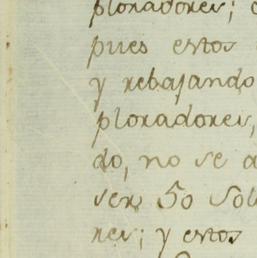 ploradores;
pues estos
y rebajando
ploradores,
do, no se a
ser 50 Sol
res; y estos